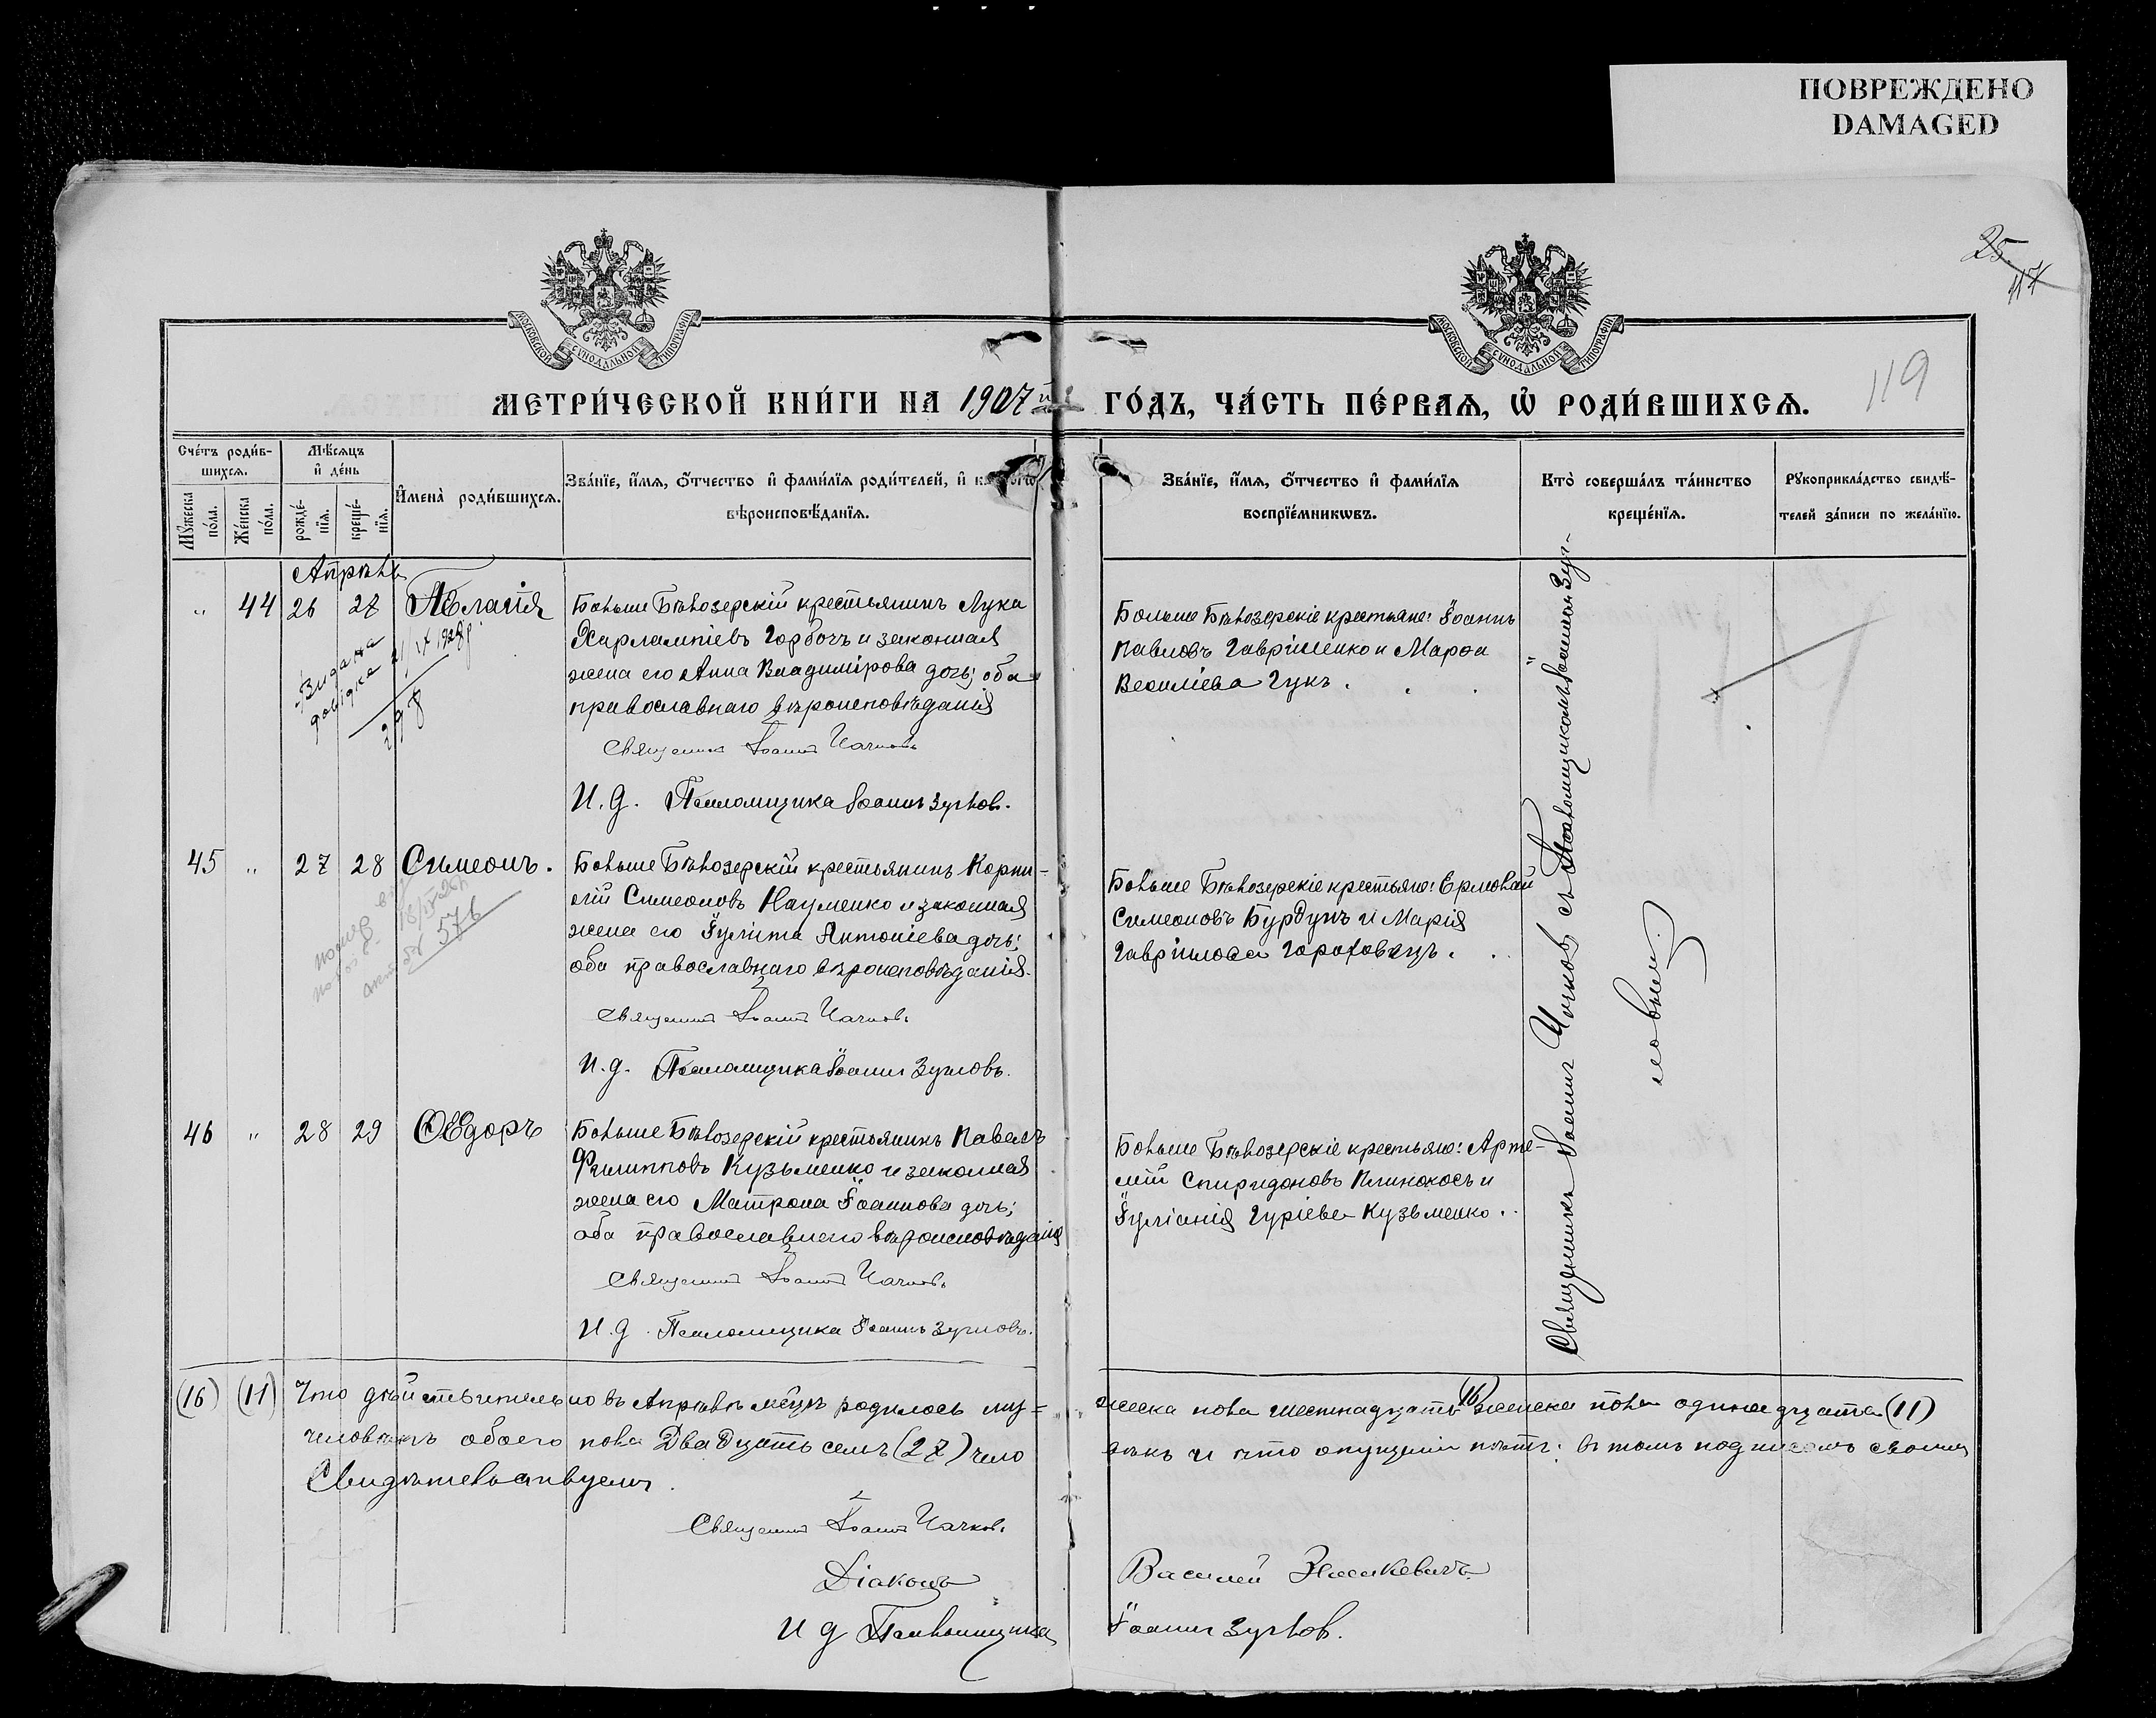 ПОВРЕЖДЕНО
DAMAGED
25
117
119
МОСКОВСКОЙ СѴНОДАЛЬНОЙ ТИПОГРАФІИ
МОСКОВСКОЙ СѴНОДАЛЬНОЙ ТИПОГРАФІИ
МЕТРИ́ЧЕСКОЙ КНИ́ГИ НА 1907й ГО́ДЪ, ЧА́СТЬ ПЕ́РВАѦ, Ѡ҆ РОДИ́ВШИХСѦ.
Сче́тъ роди́в-
шихсѧ.
Мꙋ́жеска по́ла.
Же́нска по́ла.
Мѣ́сѧцъ
и҆ де́нь
рожде́-
нїѧ.
креще́-
нїѧ.
И҆мена̀ роди́вшихсѧ.
Зва́нїе, и҆́мѧ, ѻ҆́тчество и҆ фами́лїѧ роди́телей, и҆
вѣроисповѣ́данїѧ.
Зва́нїе, и҆́мѧ, ѻ҆́тчество и҆ фами́лїѧ
воспрїе́мникѡвъ.
Кто̀ соверша́лъ та́инство
креще́нїѧ.
Рꙋкоприкла́дство свидѣ́-
телей за́писи по жела́нїю.
Апрѣль
" 44 26 27 Пелагія
Больше Бѣлозерскій крестьянинъ Лука
Харлампіевъ Горбочъ и законная
жена его Анна Владимірова дочь; оба
православнаго вѣроисповѣданія
Священникъ Іоаннъ Чачковъ
И. д. Псаломщика Іоаннъ Зусловъ.
Больше Бѣлозерскіе крестьяне: Іоаннъ
Павловъ Гавриленко и Марѳа
Василіева Гукъ.
Видана
довідка
298
45 " 27 28 Симеонъ.
Больше Бѣлозерскій крестьянинъ Корни-
лій Симеоновъ Науменко и законная
жена его Іулита Антоніева дочь;
оба православнаго вѣроисповѣданія.
Священникъ Іоаннъ Чачковъ
И. д. Псаломщика Іоаннъ Зусловъ.
Больше Бѣлозерскіе крестьяне: Ермолай
Симеоновъ Бурдунъ и Марія
Гавріилова Гороховецъ.
576
46 " 28 29 Ѳеодоръ
Больше Бѣлозерскій крестьянинъ Павелъ
Филипповъ Кузьменко и законная
жена его Матрона Іоаннова дочь;
оба православнаго вѣроисповѣданія
Священникъ Іоаннъ Чачковъ
И. д. Псаломщика Іоаннъ Зусловъ.
Больше Бѣлозерскіе крестьяне: Арте-
мій Спиридоновъ Клинокосъ и
Іуліанія Гуріева Кузьменко.
Священникъ Іоаннъ Чачковъ съ Псаломщикомъ Іоанномъ Зус-
ловымъ
(16) (11) Что дѣйствительно въ Апрѣлѣ мѣсяцѣ родилось му=
жеска пола шестнадцать (16) женска пола одинадцать (11)
человѣкъ обоего пола Двадцать семь (27) чело
вѣкъ и что опущенія нѣтъ: въ томъ подписомъ своимъ
Свидѣтельствуемъ.
Священникъ Іоаннъ Чачковъ.
Діаконъ Василій
И д Псаломщика Іоаннъ Зусловъ.